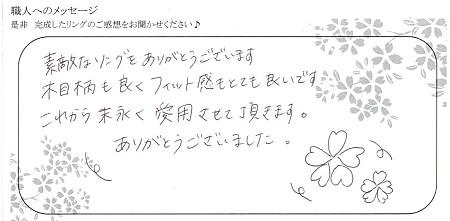 職人へのメッセージ
是非 完成したリングのご感想をお聞かせください♪
素敵なリングをありがとうございます
木目柄も良くフィット感もとても良いです
これから末永く愛用させて頂きます。
ありがとうございました。